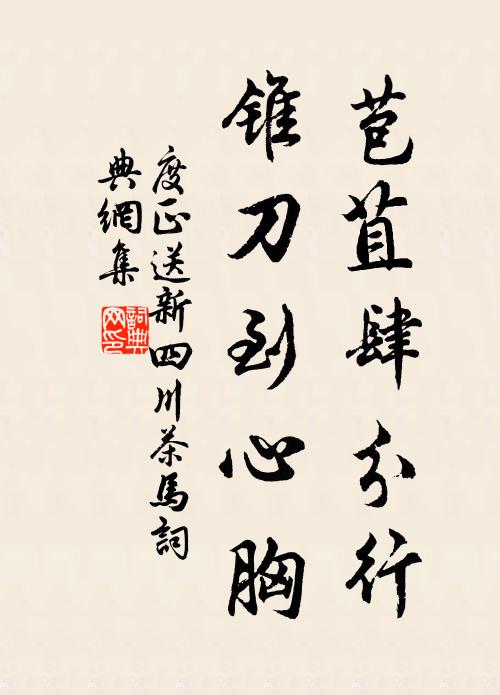 苞苴肆分行
锥刀到心胸
度正送新四川茶馬詞
典網集
詞典
网印